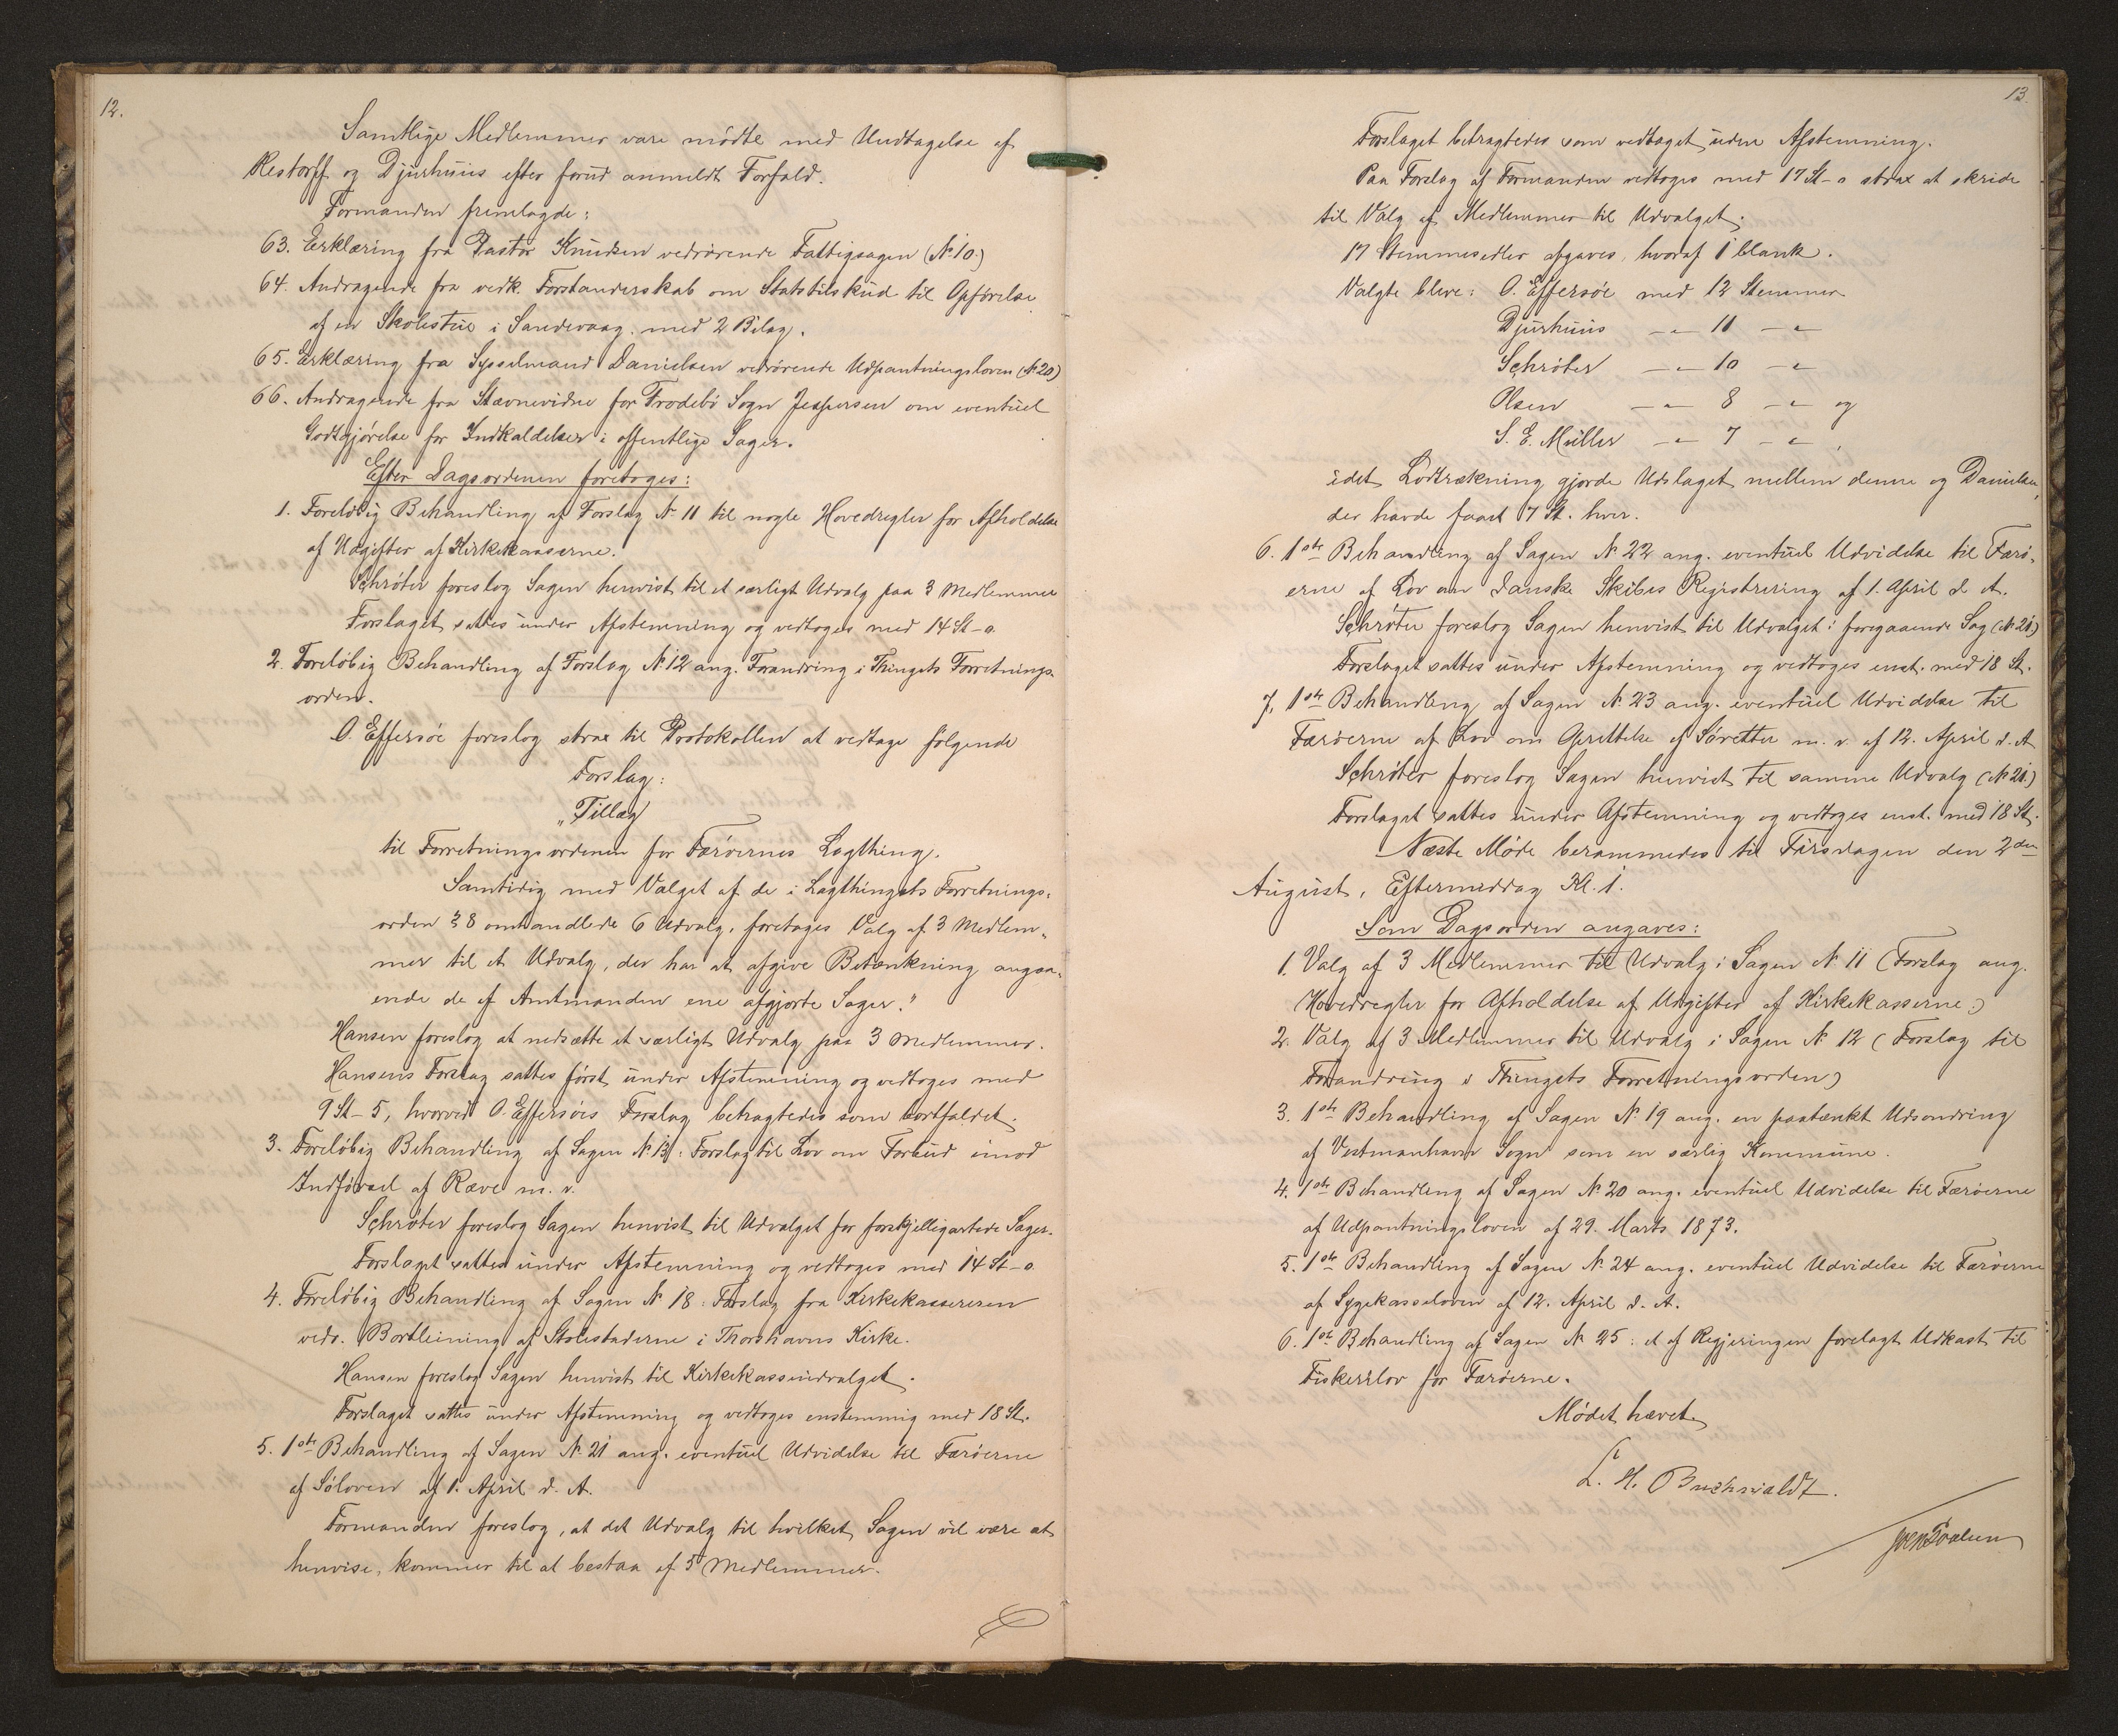 12.
Samtlige Medlemmer vare mödte med Undtagelse af
Restorff og Djurhuus efter forud anmeldt Forfald.
Formanden fremlagde:
63. Erklæring fra Pastor Knudsen vedrörende Fattigsagen (№ 10.)
64. Andragende fra vedk. Forstanderskab om Statstilskud til Opförelse
af en Skolestue i Sandevaag. med 2 Bilag.
65. Erklæring fra Sysselmand Danielsen vedrörende Udpantningsloven (№ 20)
66. Andragende fra Stævnevidne for Frodebö Sogn Jespersen om eventuel
Godtgjörelse for Indkaldelser i offentlige Sager.
Efter Dagsordenen foretoges:
1. Foreløbig Behandling af Forslag № 11 til nogle Hovedregler for Afholdelse
af Udgifter af Kirkekasserne.
Schröter foreslog Sagen henvist til et særligt Udvalg paa 3 Medlemmer
Forslaget sattes under Afstemning og vedtoges med 14 St-0.
2. Foreløbig Behandling af Forslag № 12 ang. Forandring i Thingets Forretnings-
orden.
O. Effersöe foreslog strax til Protokollen at vedtage fölgende
Forslag:
„Tillæg
til Forretningsordenen for Færöernes Lagthing.
Samtidig med Valget af de i Lagthingets Forretnings-
orden § 8 omhandlede 6 Udvalg, foretages Valg af 3 Medlem-
mer til et Udvalg, der har at afgive Betænkning angaa-
ende de af Amtmanden ene afgjorte Sager."
Hansen foreslog at nedsætte et særligt Udvalg paa 3 Medlemmer.
Hansens Forslag sattes först under Afstemning og vedtoges med
9 St-5, hvorved O. Effersöes Forslag betragtedes som bortfaldet.
3. Foreløbig Behandling af Sagen № 13: Forslag til Lov om Forbud imod
Indförsel af Ræve m. v.
Schröter foreslog Sagen henvist til Udvalget for forskjelligartede Sager.
Forslaget sattes under Afstemning og vedtoges med 14 St-0.
4. Foreløbig Behandling af Sagen № 18: Forslag fra Kirkekassereren
vedr. Bortleining af Stolestaderne i Thorshavns Kirke.
Hansen foreslog Sagen henvist til Kirkekasseudvalget.
Forslaget sattes under Afstemning og vedtoges enstemmig med 18 St.
5. 1ste Behandling af Sagen № 21 ang. eventuel Udvidelse til Færöerne
af Söloven af 1. April d. A.
Formanden foreslog, at det Udvalg til hvilket Sagen vil være at
henvise, kommer til at bestaa af 5 Medlemmer.
13.
Forslaget betragtedes som vedtaget uden Afstemning.
Paa Forslag af Formanden vedtoges med 17 St-0 strax at skride
til Valg af Medlemmer til Udvalget.
17 Stemmesedler afgaves, hvoraf 1 blank.
Valgte bleve: O. Effersöe med 12 Stemmer
Djurhuus — " — 11 — "
Schröter — " — 10 — "
Olsen — " — 8 — " og
S. E. Müller — " — 7 — ",
idet Lodtrækning gjorde Udslaget mellem denne og Danielsen,
der havde faaet 7 St. hver.
6. 1ste Behandling af Sagen № 22 ang. eventuel Udvidelse til Færö-
erne af Lov om Danske Skibes Registrering af 1. April d. A.
Schröter foreslog Sagen henvist til Udvalget i foregaaende Sag (№ 21)
Forslaget sattes under Afstemning og vedtoges enst. med 18 St.
7. 1ste Behandling af Sagen № 23 ang. eventuel Udvidelse til
Færöerne af Lov om Oprettelse af Söretter m. v. af 12. April d. A.
Schröter foreslog Sagen henvist til samme Udvalg (№ 21.)
Forslaget sattes under Afstemning og vedtoges enst. med 18 St.
Næste Möde berammedes til Tirsdagen den 2den
August, Eftermiddag Kl. 1.
Som Dagsorden angaves:
1. Valg af 3 Medlemmer til Udvalg i Sagen № 11 (Forslag ang.
Hovedregler for Afholdelse af Udgifter af Kirkekasserne.)
2. Valg af 3 Medlemmer til Udvalg i Sagen № 12 (Forslag til
Forandring i Thingets Forretningsorden)
3. 1ste Behandling af Sagen № 19 ang. en paatænkt Udsondring
af Vestmanhavn Sogn som en særlig Kommune.
4. 1ste Behandling af Sagen № 20 ang. eventuel Udvidelse til Færöerne
af Udpantningsloven af 29. Marts 1873.
5. 1ste Behandling af Sagen № 24 ang. eventuel Udvidelse til Færöerne
af Sygekasseloven af 12. April d. A.
6. 1ste Behandling af Sagen № 25: et af Regjeringen forelagt Udkast til
Fiskerilov for Færöerne.
Mödet hævet.
L. H. Buchwaldt.